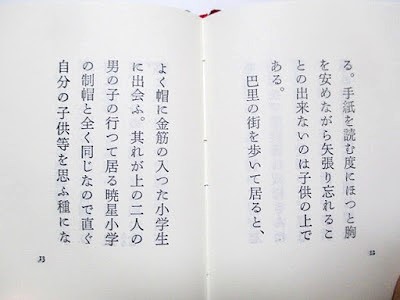 る。手紙を読む度にほつと胸
を安めながら矢張り忘れるこ
との出来ないのは子供の上で
ある。
巴里の街を歩いて居ると、
よく帽に金筋の入つた小学生
に出会ふ。其れが上の二人の
男の子の行つて居る暁星小学
の制帽と全く同じなので直ぐ
自分の子供等を思ふ種にな